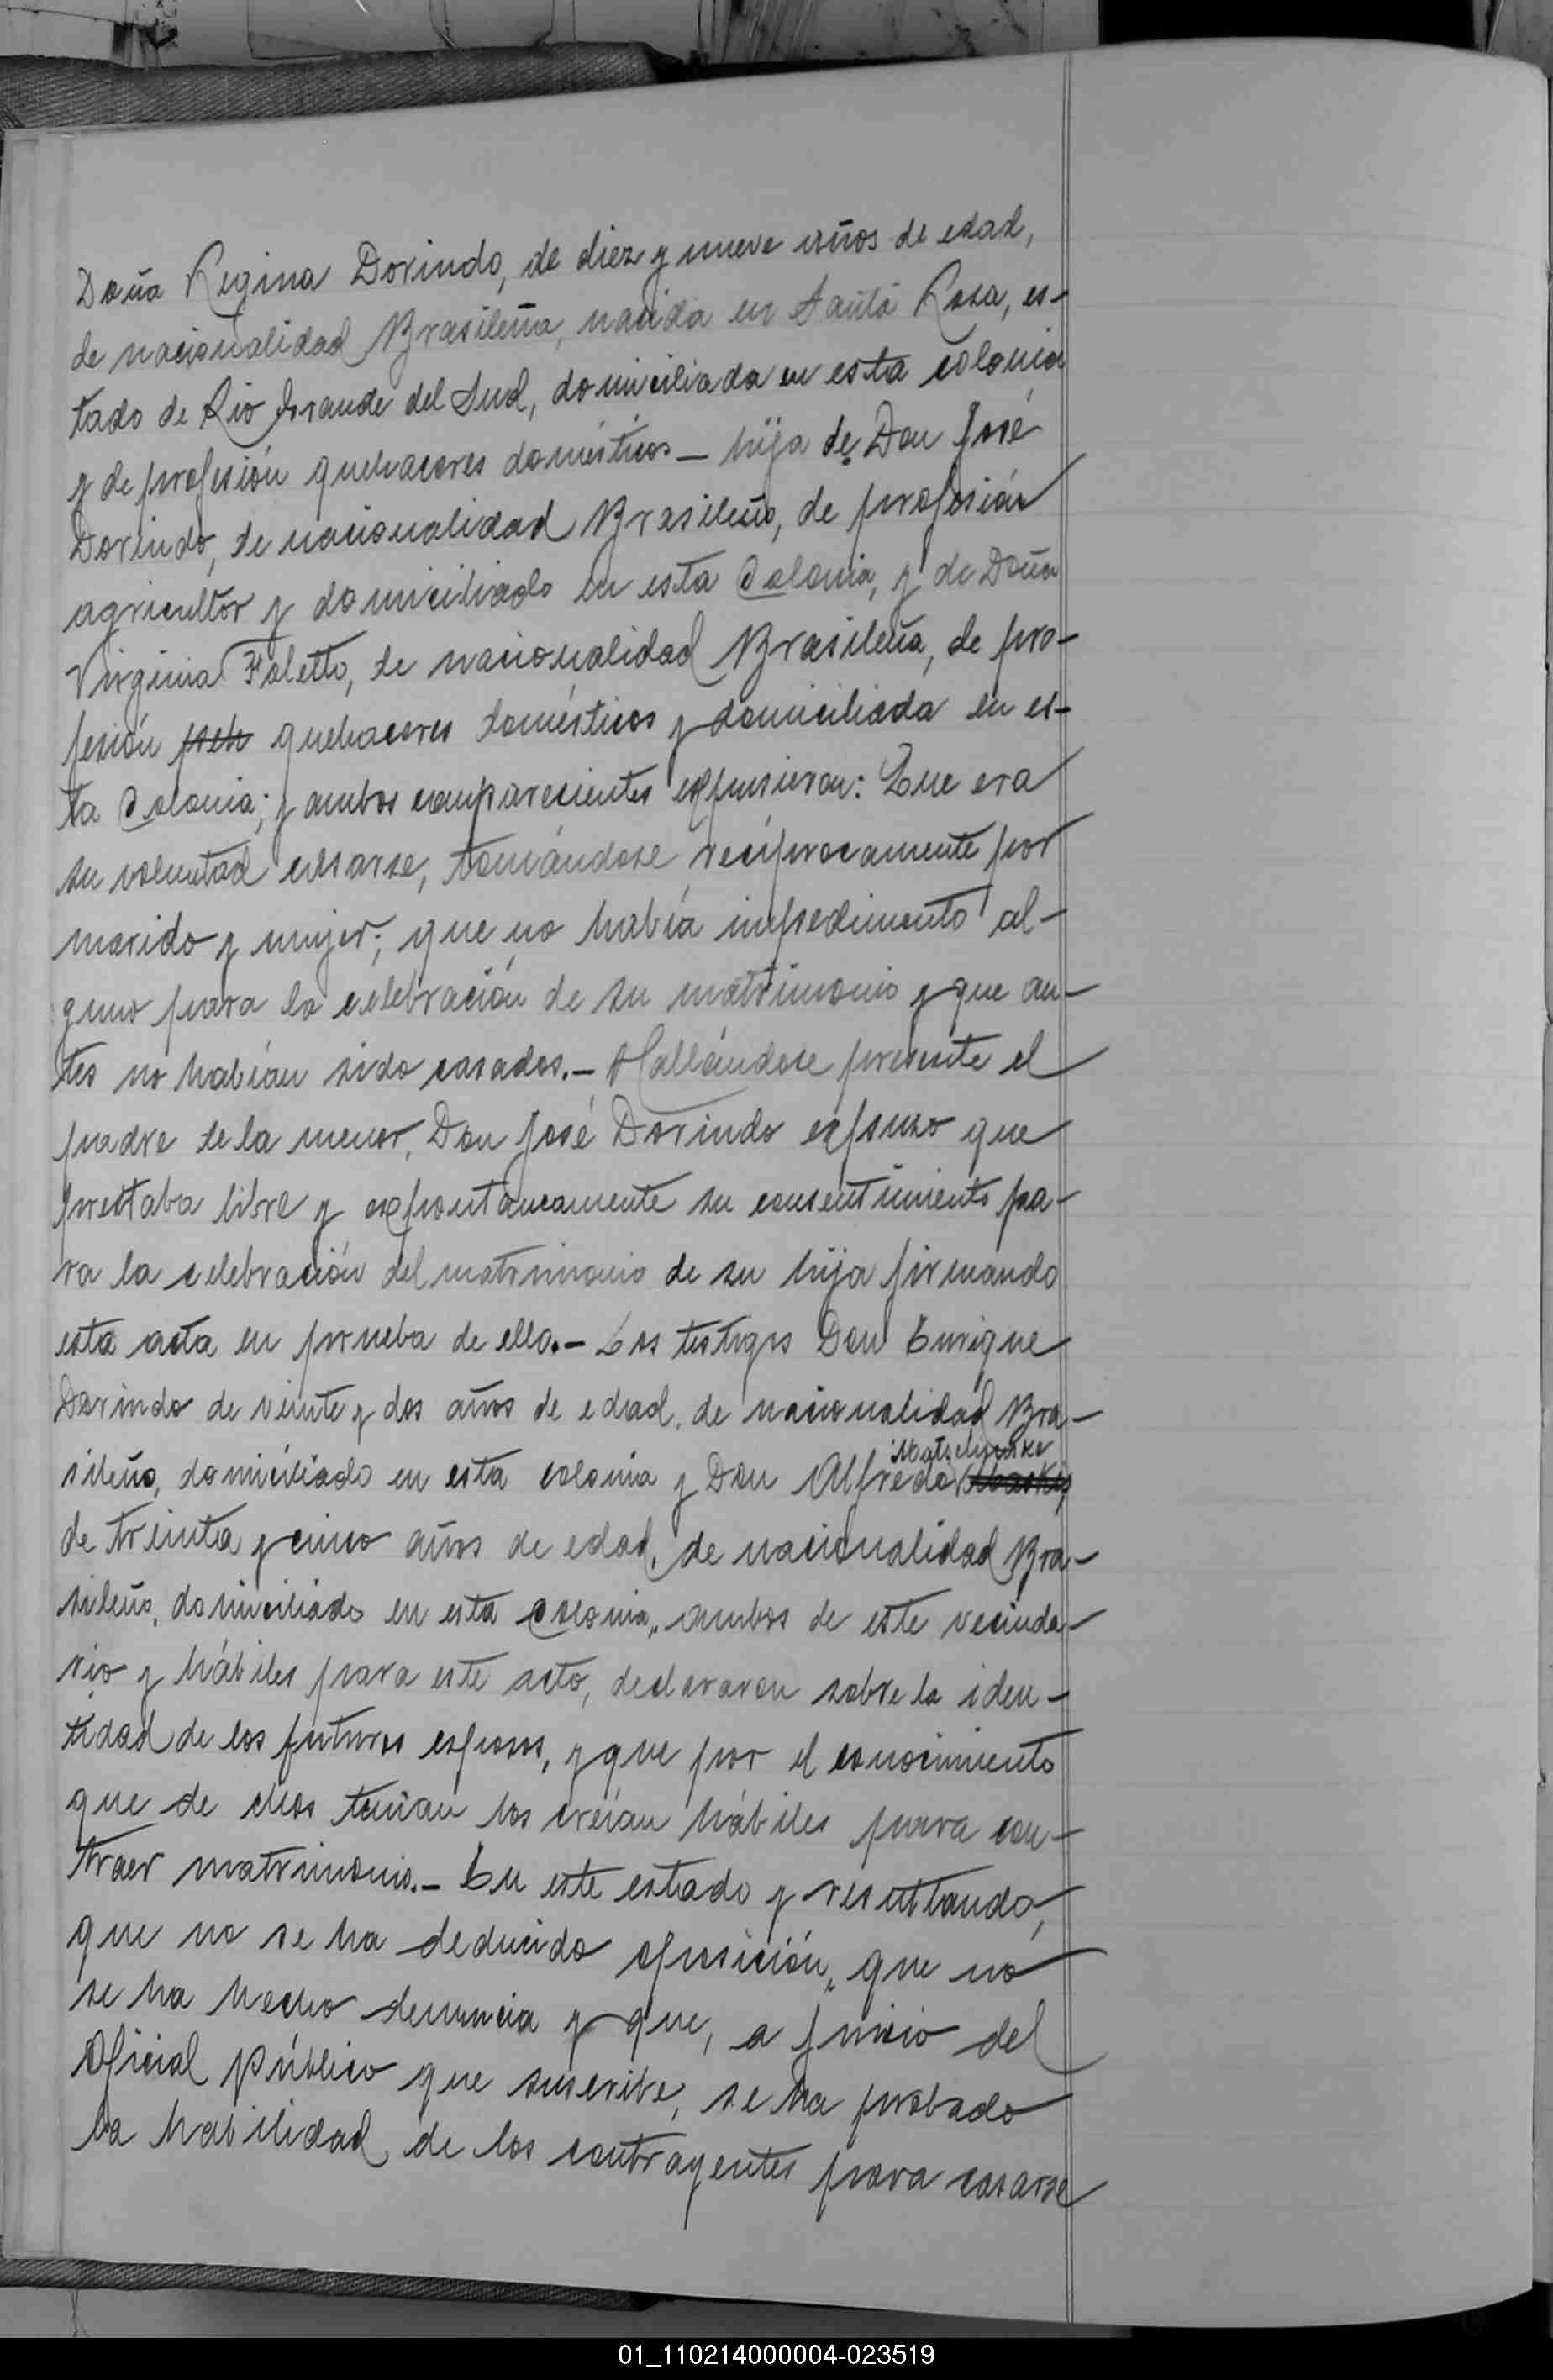 Doña Regina Dorindo, de diez y nueve años de edad,
de nacionalidad Brasileña, nacida en Santa Rosa, es-
tado de Rio Grande del Sud, domiciliada en esta colonia
y de profesión quehaceres domésticos — hija de Don José
Dorindo, de nacionalidad Brasileño, de profesión
agricultor y domiciliado en esta Colonia, y de Doña
Virginia Foletto, de nacionalidad Brasileña, de pro-
fesión quehaceres domésticos y domiciliada en es-
ta Colonia; y ambos comparecientes expusieron: Que era
su voluntad casarse, tomándose recíprocamente por
marido y mujer; que no había impedimento al-
guno para la celebración de su matrimonio y que an-
tes no habían sido casados.- Hallándose presente el
padre de la menor, Don José Dorindo expuso que
prestaba libre y expontaneamente su consentimiento pa-
ra la celebración del matrimonio de su hija firmando
esta acta en prueba de ello.- Los testigos Don Enrique
Dorindo de veinte y dos años de edad, de nacionalidad Bra-
sileño, domiciliado en esta colonia y Don Alfredo
de treinta y cinco años de edad, de nacionalidad Bra-
sileño, domiciliado en esta Colonia, ambos de este vecinda-
rio y hábiles para este acto, declararon sobre la iden-
tidad de los futuros esposos, y que por el conocimiento
que de ellos tenían los creían hábiles para con-
traer matrimonio.- En este estado y resultando,
que no se ha deducido oposición, que no
se ha hecho denuncia y que, a juicio del
Oficial Público que suscribe, se ha probado
la habilidad de los contrayentes para casarse
01_110214000004-023519